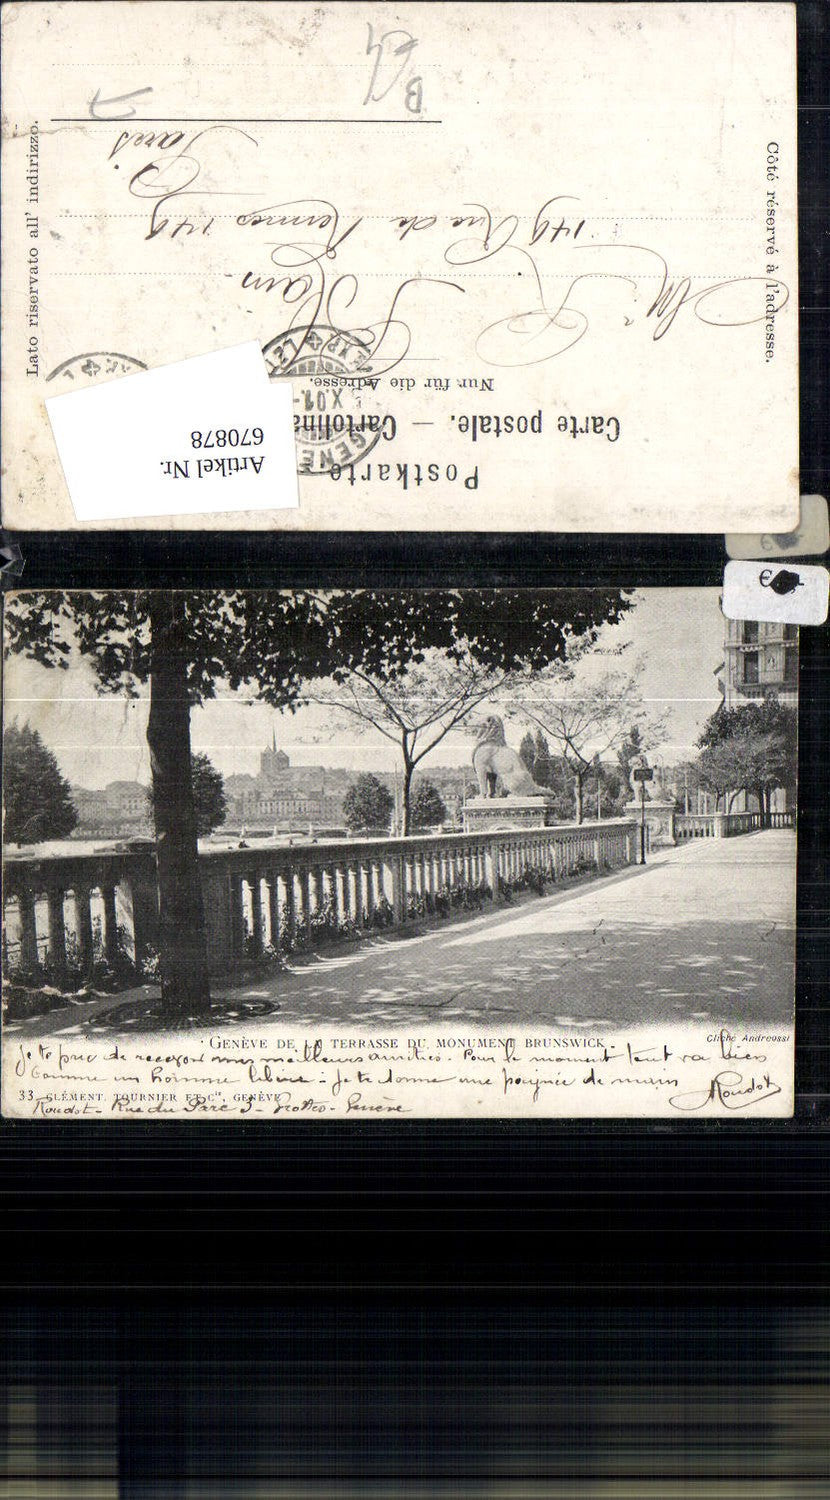 Postkarte
Carte postale. — Cartolina
Nur für die Adresse.
Côté réservé à l'adresse.
Lato riservato all' indirizzo.
GENE
X.01.-
Artikel Nr.
670878
Mr
149 Rue de Rennes 149
Paris
B
€
GENÈVE DE LA TERRASSE DU MONUMENT BRUNSWICK
Cliché Andreossi
Je te prie de recevoir mes meilleurs amitiés. Pour le moment tout va bien
Comme un homme libéré. Je te donne une poignée de main
Roudot
33. CLÉMENT, TOURNIER ET Cie, GENÈVE
Roudot - Rue du Parc 3 - Grottes - Genève